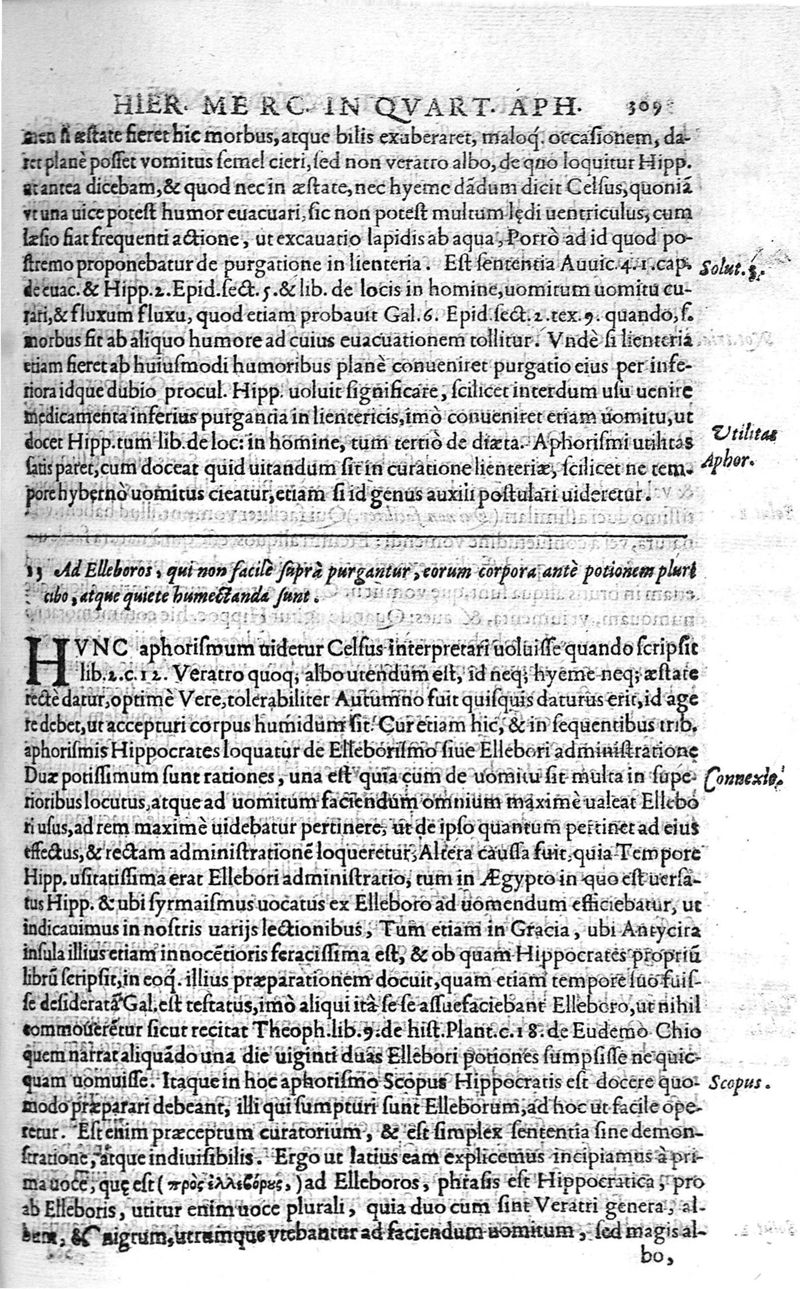 HIER. MERC. IN QVART. APH. 309
men si æstate fieret hic morbus, atque bilis exuberaret, maloq́. occasionem, da-
ret planè posset vomitus semel cieri, sed non veratro albo, de quo loquitur Hipp.
ut antea dicebam, & quod nec in æstate, nec hyeme dādum dicit Celsus, quoniā
vt una uice potest humor euacuari, sic non potest multum lędi uentriculus, cum
læsio fiat frequenti actione, ut excauatio lapidis ab aqua, Porrò ad id quod po-
stremo proponebatur de purgatione in lienteria. Est sententia Auuic. 4. 1. cap.
Solut. 3.
de euac. & Hipp. 2. Epid. sect. 5. & lib. de locis in homine, uomitum uomitu cu-
rari, & fluxum fluxu, quod etiam probauit Gal. 6. Epid. sect. 2. tex. 9. quando, s.
morbus fit ab aliquo humore ad cuius euacuationem tollitur. Vndè si lienteria
etiam fieret ab huiusmodi humoribus planè conueniret purgatio eius per infe-
riora idque dubio procul. Hipp. uoluit significare, scilicet interdum usu uenire
medicamenta inferius purgantia in lientericis, imò conueniret etiam uomitu, ut
docet Hipp. tum lib. de loc: in homine, tum tertiò de diæta. Aphorismi utilitas
Utilitas
satis patet, cum doceat quid uitandum sit in curatione lienteriæ, scilicet ne tem-
Aphor.
pore hyberno uomitus cieatur, etiam si id genus auxili postulari uideretur.
13 Ad Elleboros, qui non facilè suprà purgantur, eorum corpora antè potionem pluri
cibo, atque quiete humectanda sunt.
HVNC aphorismum uidetur Celsus interpretari uoluisse quando scripsit
lib. 2. c. 12. Veratro quoq; albo utendum est, id neq; hyeme neq; æstate
rectè datur, optimè Vere, tolerabiliter Autumno fuit quisquis daturus erit, id age
re debet, ut accepturi corpus humidum sit. Cur etiam hic, & in sequentibus trib.
aphorismis Hippocrates loquatur de Elleborismo siue Ellebori administratione
Duæ potissimum sunt rationes, una est quia cum de uomitu sit multa in supe-
Connexio.
rioribus locutus, atque ad uomitum faciendum omnium maximè ualeat Ellebo
ri usus, ad rem maximè uidebatur pertinere, ut de ipso quantum pertinet ad eius
effectus, & rectam administrationē loqueretur, Altera caussa fuit, quia Tempore
Hipp. usitatissima erat Ellebori administratio, tum in Ægypto in quo est uersa-
tus Hipp. & ubi syrmaismus uocatus ex Elleboro ad uomendum efficiebatur, ut
indicauimus in nostris uarijs lectionibus, Tum etiam in Gracia, ubi Antycira
insula illius etiam innocētioris feracissima est, & ob quam Hippocrates propriū
librū scripsit, in eoq́. illius præparationem docuit, quam etiam tempore suo fuis-
se desideratā Gal. est testatus, imò aliqui ità se se assuefaciebant Elleboro, ut nihil
commouerētur sicut recitat Theoph. lib. 9. de hist. Plant. c. 18. de Eudemo Chio
quem narrat aliquādo una die uiginti duas Ellebori potiones sumpsisse ne quic-
quam uomuisse. Itaque in hoc aphorismo Scopus Hippocratis est docere quo-
Scopus.
modo præparari debeant, illi qui sumpturi sunt Elleborum, ad hoc ut facile ope-
retur. Est enim præceptum curatorium, & est simplex sententia sine demon-
stratione, atque indiuisibilis. Ergo ut latius eam explicemus incipiamus à pri-
ma uoce, quę est (πρὸς ἐλλεβόρυς,) ad Elleboros, phrasis est Hippocratica, pro
ab Elleboris, utitur enim uoce plurali, quia duo cum sint Veratri genera, al-
bum, & nigrum, utrumque vtebantur ad faciendum uomitum, sed magis al-
bo,